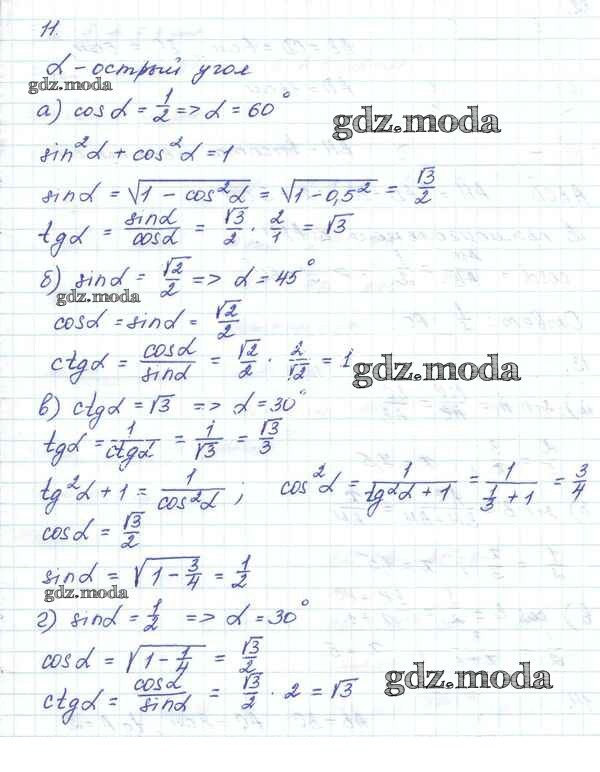 11.
α - острый угол
gdz.moda
а) cos α = 1/2 => α = 60°
gdz.moda
sin²α + cos²α = 1
sin α = √(1 - cos²α) = √(1 - 0,5²) = √3/2
tg α = sin α/cos α = √3/2 · 2/1 = √3
б) sin α = √2/2 => α = 45°
gdz.moda
cos α = sin α = √2/2
ctg α = cos α/sin α = √2/2 · 2/√2 = 1
gdz.moda
в) ctg α = √3 => α = 30°
tg α = 1/ctg α = 1/√3 = √3/3
tg²α + 1 = 1/cos²α ; cos²α = 1/(tg²α + 1) = 1/(1/3 + 1) = 3/4
cos α = √3/2
sin α = √(1 - 3/4) = 1/2
gdz.moda
г) sin α = 1/2 => α = 30°
cos α = √(1 - 1/4) = √3/2
gdz.moda
ctg α = cos α/sin α = √3/2 · 2 = √3